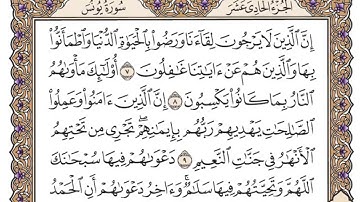 الجزء الحادي عشر سورة يونس
إِنَّ ٱلَّذِينَ لَا يَرْجُونَ لِقَآءَنَا وَرَضُوا۟ بِٱلْحَيَوٰةِ ٱلدُّنْيَا وَٱطْمَأَنُّوا۟
بِهَا وَٱلَّذِينَ هُمْ عَنْ ءَايَٰتِنَا غَٰفِلُونَ ٧ أُو۟لَٰٓئِكَ مَأْوَىٰهُمُ
ٱلنَّارُ بِمَا كَانُوا۟ يَكْسِبُونَ ٨ إِنَّ ٱلَّذِينَ ءَامَنُوا۟ وَعَمِلُوا۟
ٱلصَّٰلِحَٰتِ يَهْدِيهِمْ رَبُّهُم بِإِيمَٰنِهِمْ ۖ تَجْرِى مِن تَحْتِهِمُ
ٱلْأَنْهَٰرُ فِى جَنَّٰتِ ٱلنَّعِيمِ ٩ دَعْوَىٰهُمْ فِيهَا سُبْحَٰنَكَ
ٱللَّهُمَّ وَتَحِيَّتُهُمْ فِيهَا سَلَٰمٌ ۚ وَءَاخِرُ دَعْوَىٰهُمْ أَنِ ٱلْحَمْدُ